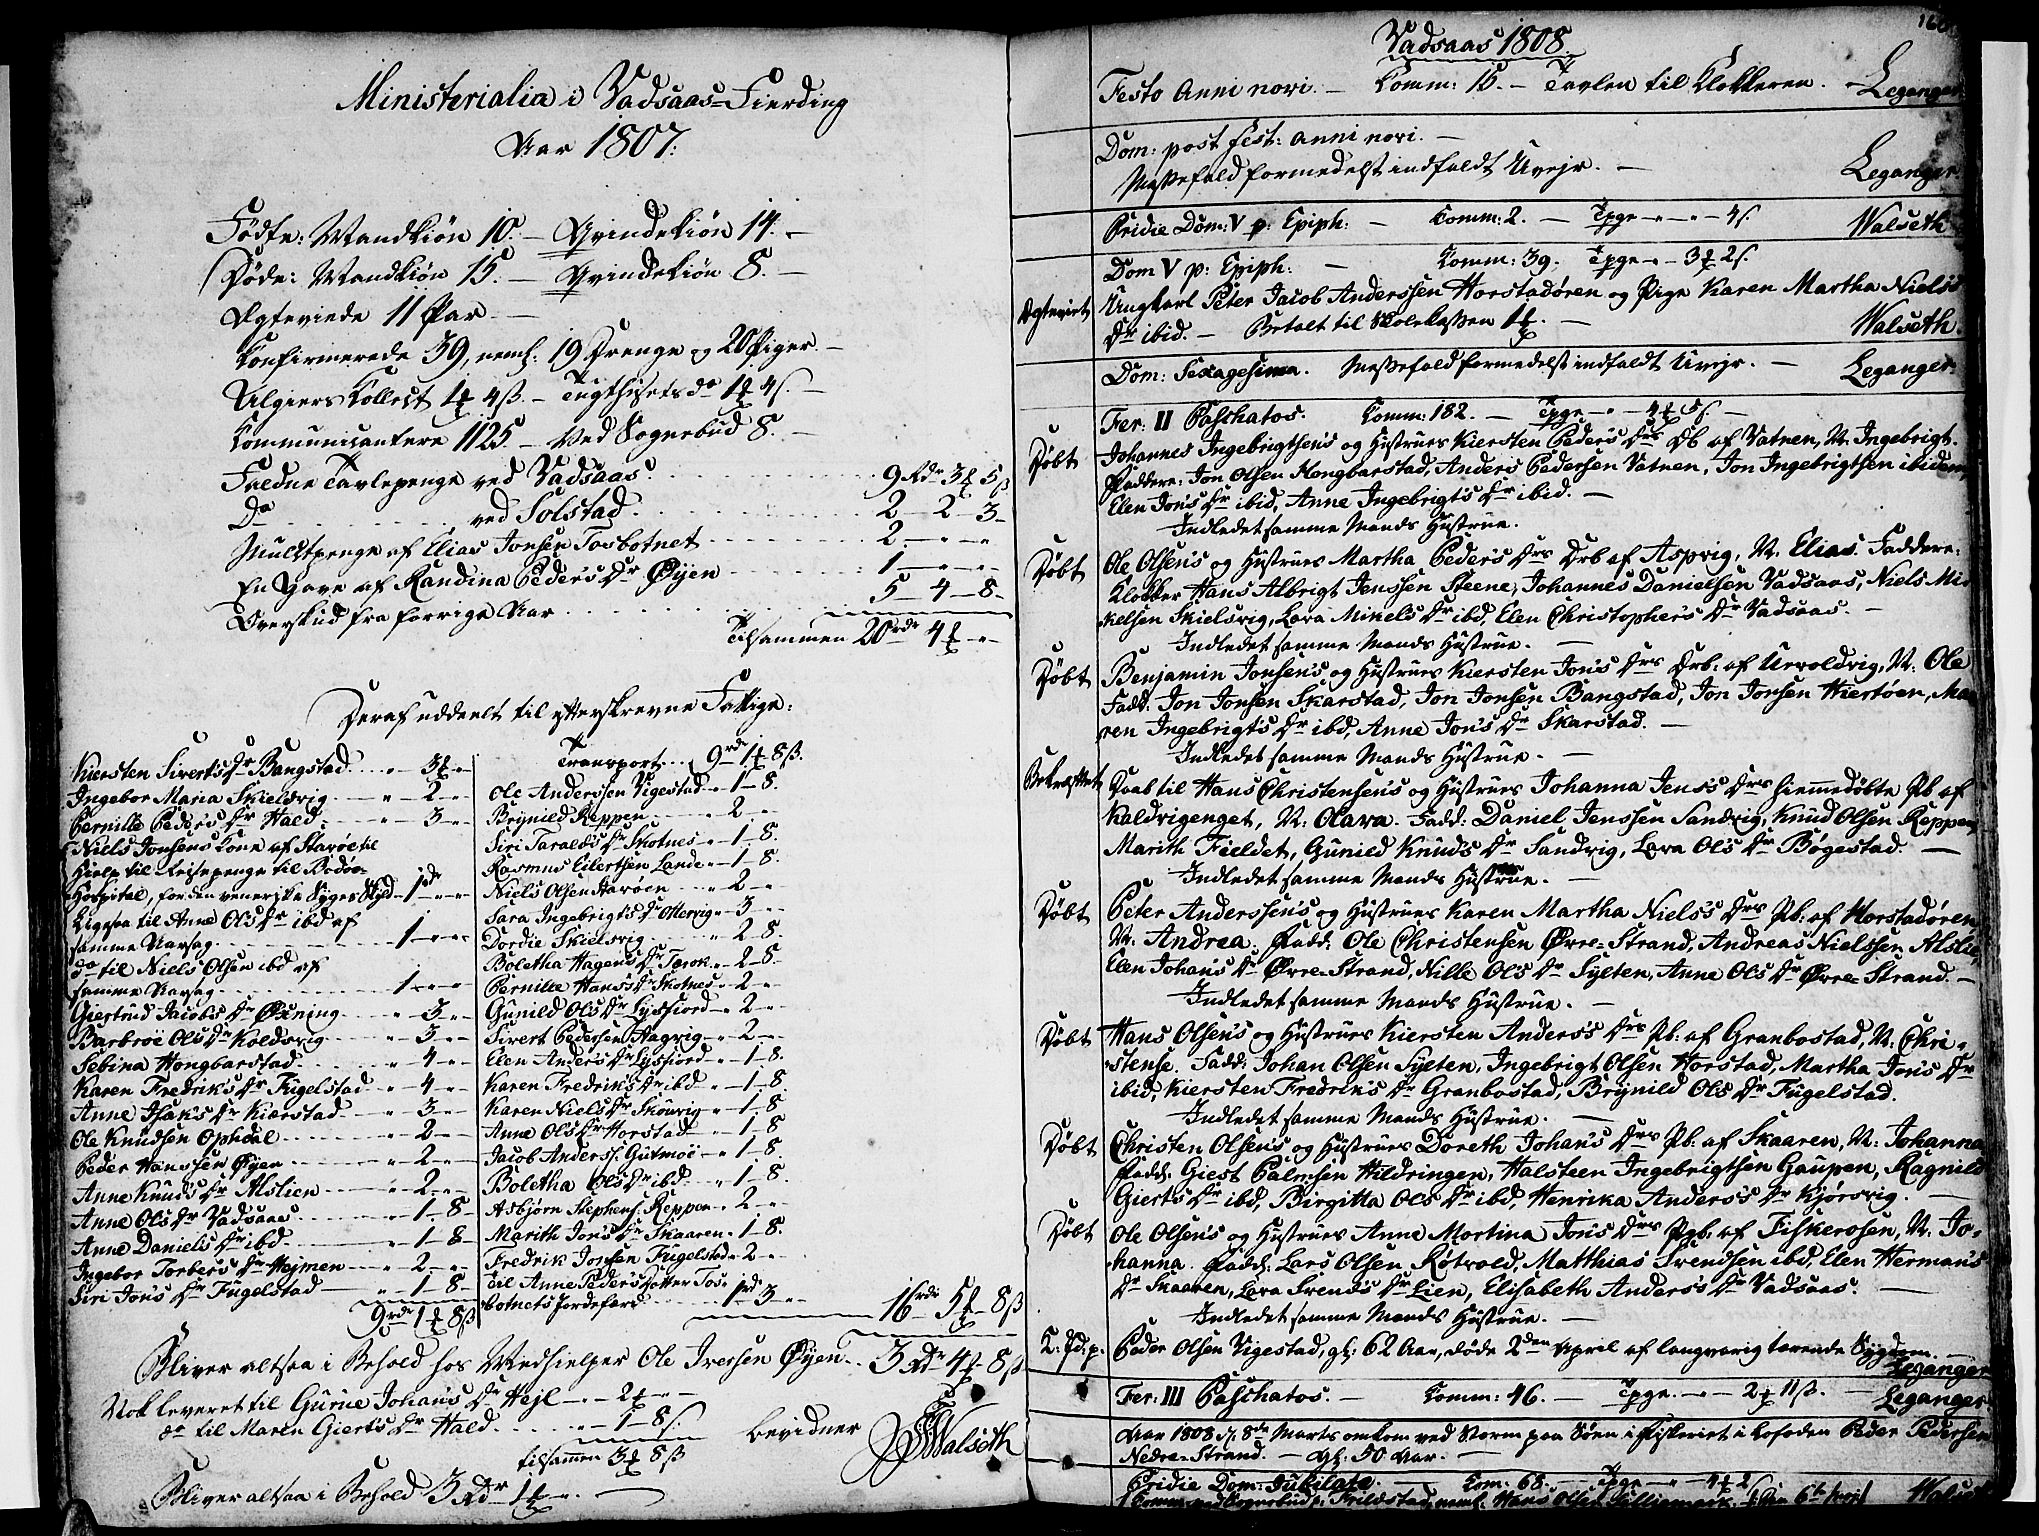 Ministerialia i Vadsaas-Fierding
Aar 1807:
Födte: Mandkiön 10. – Qvindekiön 14. –
Döde: Mandkiön 15. – Qvindekiön 8. –
Ægteviede 11 Par –
Konfirmerede 39, neml: 19 Drenge og 20 Piger. –
Algiers Kollect 1 4 ß. – Tugthusets do 1 4 ß. –
Kommunicantere 1125. – Ved Sognebud 8. –
Faldne Tavlepenge ved Vadsaas 9 Rdr 3 5 ß
Do ved Solstad. 2 – 2 – 3 –
Mulctpenge af Elias Jonsen Tosbotnet 2. – " – "
En Gave af Randina Peders Dr Øyen 1 – " – "
Overskud fra forrige Aar 5 – 4 – 8 –
Tilsammen 20 rdr 4 – " –
Deraf uddeelt til efterskrevne Fattige:
Kiersten Siverts Dr Bangstad " – 3 – "
Ingebor Maria Skielsvig " – 2 – "
Pernille Peders Dr Hald " – 3 – "
Niels Jonsens Kone af Starøe til
Hielp til Reisepenge til Bodøe
Hospital, for den veneriske Syge 1 rdr – " – "
Ligesaa til Anne Ols Dr ibd af
samme Aarsag 1 – " – "
do til Niels Olsen ibd af
samme Aarsag 1 – " – "
Giertrud Jacobs Dr Øxning " – 3 – "
Barbroe Ols Dr Koldsvig " – 3 – "
Sebina Hongbarstad " – 4 – "
Karen Fredriks Dr Fugelstad " – 4 – "
Anne Isaks Dr Kiærstad " – 3 – "
Ole Knudsen Ophdal " – 2 – "
Peder Hanssen Øyen " – 2 – "
Anne Knuds Dr Alslien " – 2 – "
Anne Ols Dr Vadsaas " – 1 – 8 –
Anne Daniels Dr ibd " – 1 – 8 –
Ingebor Torbers Dr Hejmen " – 2 – "
Siri Jons Dr Fugelstad " – 1 – 8 –
9 rdr 1 8 ß
Transport 9 rdr 1 8 ß.
Ole Anderssen Vigestad " – 1 – 8.
Brynild Reppen " – 2 – "
Siri Taralds Dr Skotnes " – 1 – 8.
Rasmus Eilertsen Lande " – 1 – 8.
Niels Olsen Starøen " – 2 – "
Sara Ingebrigts Dr Ottersvig " – 3 – "
Dordie Skielsvig " – 2 – 8
Boletha Hagens Dr Torok " – 2 – 8.
Pernille Hans's Dr Skotnes " – 2 – "
Gunild Ols Dr Lysfiord " – 2 – "
Sivert Pedersen Aagvig " – 2 – "
Elen Anders Dr Lysfiord " – 1 – 8.
Karen Fredriks Dr ibd " – 1 – 8
Karen Niels Dr Skonvig " – 1 – 8
Anne Ols Dr Horstad " – 1 – 8
Jacob Anders. Gutmoe " – 1 – 8.
Boletha Ols Dr ibd " – 1 – 8.
Asbjörn Stephens. Reppen " – 2 – "
Marith Jons Dr Skaaren " – 1 – 8.
Fredrik Jonsen Fugelstad " – 2 – "
Til Anne Peders Dotter Tos-
botnets Jordefærd 1 rd 3 – " 16 rdr 5 8 ß
Bliver altsaa i Behold hos Medhielper Ole Iversen Øyen. 3 Rdr 4 8 ß
Nok leveret til Gurue Johans Dr Hejl " – 2 – "
do til Maren Gierts Dr Hald " – 1 – 8 ß. bevidner
Walseth
tilsammen 3 8 ß
Bliver altsaa i Behold 3 Rdr 1 – "
Vadsaas 1808.
Festo anni novi. – Komm: 15. – Tavlen til Klokkeren. – Leganger
Dom: post fest: anni novi. –
Messefald formedelst indfaldt Uvejr. – Leganger.
Pridie Dom: V p: Epiph: – Komm: 2. – Tpge " – " – 4 ß. Walseth
Dom V p: Epiph: – Komm: 39. Tpge " – 3 2 ß.
Ægteviet Ungkarl Peter Jacob Anderssen Horstadören og Pige Karen Martha Niels's
Dr ibid. – Betalt til Skolekassen 1. – Walseth.
Dom: Sexagesima. Messefald formedelst indfaldt Uvejr. – Leganger.
Fer: II Paschatos. Komm: 182. – Tpge " – 4 5 ß. –
Døbt Johannes Ingebrigtsens og Hustrues Kiersten Peders Drs Db af Vatnen, N. Ingebrigt.
Faddere: Jon Olsen Hongbarstad, Anders Pedersen Vatnen, Jon Ingebrigtsen ibidem,
Elen Jons Dr ibid, Anne Ingebrigts Dr ibid. –
Indledet samme Mands Hustrue.
Døbt Ole Olsens og Hustrues Martha Peders Drs Drb af Aspvig, N. Elias. Faddere:
Klokker Hans Albrigt Jenssen Steene, Johannes Danielsen Vadsaas, Niels Mi-
kelsen Skielsvig, Lova Mikels Dr ibd, Elen Christophers Dr Vadsaas. –
Indledet samme Mands Hustrue. –
Døbt Benjamin Jonsens og Hustrues Kiersten Jons Drs Drb: af Urvoldvig, N: Ole
Fadd: Jon Jonsen Skarstad, Jon Jonsen Bangstad, Jon Jonsen Hiertöen, Ma-
ren Ingebrigts Dr ibd, Anne Jons Dr Skarstad. –
Indledet samme Mands Hustrue. –
Bekræftet Daab til Hans Christensens og Hustrues Johanna Jens's Drs hiemmedøbte Pb af
Kaldvigenget, N: Olava. Fadd: Daniel Jenssen Sandvig, Knud Olsen Reppen,
Marith Fieldet, Gunild Knuds Dr Sandvig, Lova Ols Dr Bøgestad. –
Indledet samme Mands Hustrue. –
Døbt Peter Anderssens og Hustrues Karen Martha Niels's Drs Pb: af Horstadören,
N. Andrea. Fadd: Ole Christensen Øvre-Strand, Andreas Nielssen Alslie,
Elen Johans Dr Øvre-Strand, Nille Ols Dr Sylten, Anne Ols Dr Øvre-Strand. –
Indledet samme Mands Hustrue. –
Døbt Hans Olsens og Hustrues Kiersten Anders's Drs Pb: af Granbostad, N: Chri-
stense. Fadd: Johan Olsen Sylten, Ingebrigt Olsen Horstad, Martha Jons Dr
ibid, Kiersten Fredriks Dr Granbostad, Brynild Ols Dr Fugelstad.
Indledet samme Mands Hustrue. –
Døbt Christen Olsens og Hustrues Doreth Johans Drs Pb. af Skaaren, N: Johanna
Fadd: Giest Palmsen Hildringen, Halsteen Ingebrigtsen Gaupen, Ragnild
Gierts Dr ibd, Birgitta Ols Dr ibd, Henrika Anders's Dr Kjørsvig. –
Døbt Ole Olsens og Hustrues Anne Martina Jons Drs Pgb: af Fiskerosen, N. Jo-
hanna. Fadd: Lars Olsen Røtvold, Matthias Svendsen ibd, Elen Hermans
Dr Skaaren, Lova Svends Dr Lien, Elisabeth Anders's Dr Vadsaas. –
Indledet samme Mands Hustrue. –
K: Jd: p: Peder Olsen Vigestad, gl: 62 Aar, døde 2den April af langvarig tærende Sygdom. –
Leganger
Fer: III Paschatos. – Komm: 46. – Tpge. – " – 2 11 ß. – Leganger.
Aar 1808 d. 8de Marts omkom ved Storm paa Søen i Fiskeriet i Lofoden Peder Pedersen
Nedre-Strand. – gl: 50 Aar. –
Pridie Dom: Jubilate. – Kom: 68. – Tpge " – 4 2 ß
Walseth